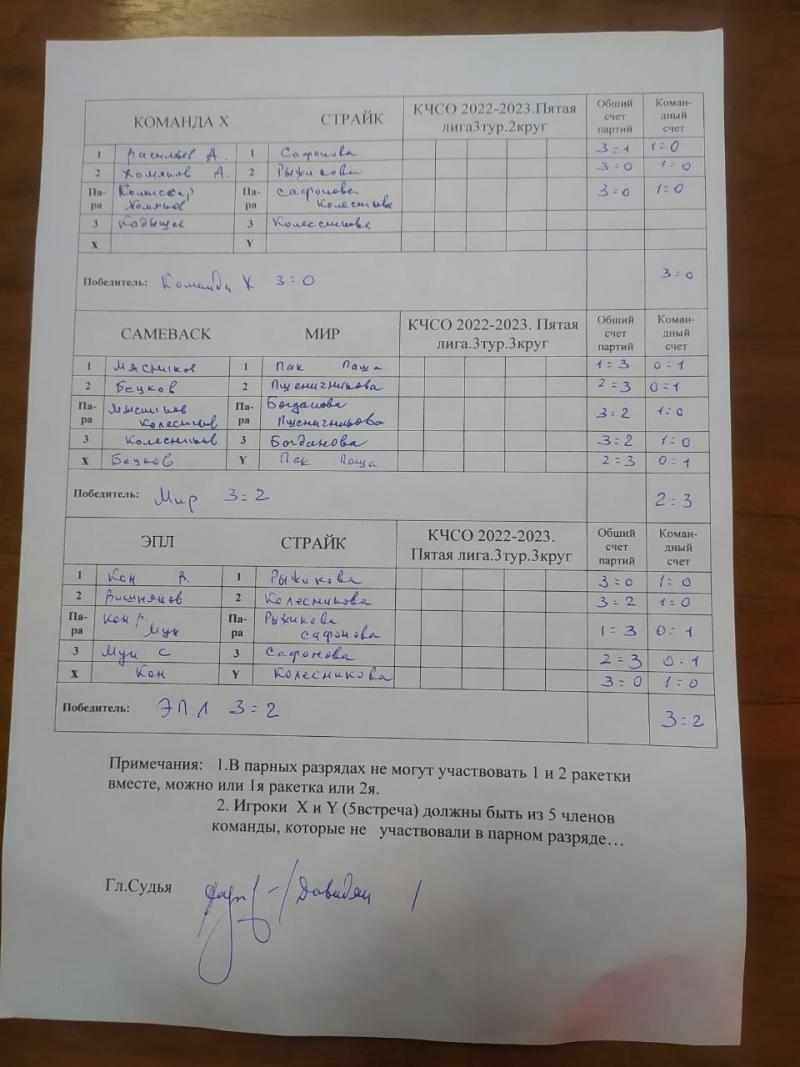 КОМАНДА Х СТРАЙК КЧСО 2022-2023.Пятая лига3тур.2круг Общий счет партий Коман-дный счет
1 Васильев А. 1 Сафонова 3=1 1:0
2 Хомяков А. 2 Рыжикова 3=0 1:0
Па-ра Хомяков Па-ра Сафонова Колесникова 3=0 1:0
3 3 Колесникова
X Y
Победитель: Команда Х 3=0 3=0
САМЕВАСК МИР КЧСО 2022-2023. Пятая лига.3тур.3круг Общий счет партий Коман-дный счет
1 Мясников 1 Пак Паша 1=3 0=1
2 Бецков 2 Пшеничникова 2=3 0=1
Па-ра Мясников Колесников Па-ра Богданова Пшеничникова 3=2 1:0
3 Колесников 3 Богданова 3=2 1:0
X Бецков Y Пак Паша 2=3 0:1
Победитель: Мир 3=2 2=3
ЭПЛ СТРАЙК КЧСО 2022-2023. Пятая лига.3тур.3круг Общий счет партий Коман-дный счет
1 Кон В. 1 Рыжикова 3=0 1:0
2 Вишняков 2 Колесникова 3=2 1:0
Па-ра Кон В. Мун Па-ра Рыжикова Сафонова 1=3 0:1
3 Мун С 3 Сафонова 2=3 0:1
X Кон Y Колесникова 3=0 1:0
Победитель: ЭПЛ 3=2 3=2
Примечания: 1.В парных разрядах не могут участвовать 1 и 2 ракетки
вместе, можно или 1я ракетка или 2я.
2. Игроки X и Y (5встреча) должны быть из 5 членов
команды, которые не участвовали в парном разряде…
Гл.Судья Давидян